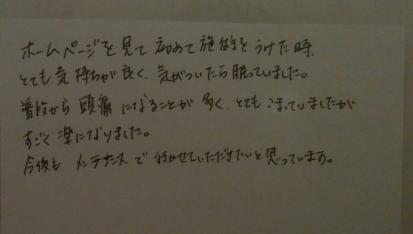 ホームページを見て初めて施術をうけた時、
とても気持ちが良く、気がついたら眠っていました。
普段から頭痛になることが多く、とてもこまっていましたが
すごく楽になりました。
今後もメンテナンスで行かせていただきたいと思っています。